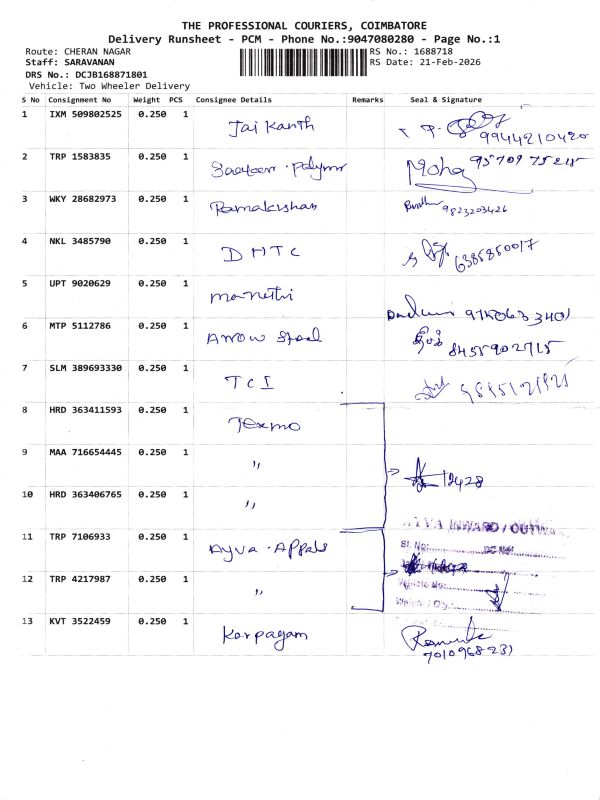 THE PROFESSIONAL COURIERS, COIMBATORE
Delivery Runsheet - PCM - Phone No.:9047080280 - Page No.:1
Route: CHERAN NAGAR RS No.: 1688718
Staff: SARAVANAN RS Date: 21-Feb-2026
DRS No.: DCJB168871801
Vehicle: Two Wheeler Delivery
S No Consignment No Weight PCS Consignee Details Remarks Seal & Signature
1 IXM 509802525 0.250 1 Jai Kanth 9944210420
2 TRP 1583835 0.250 1
3 WKY 28682973 0.250 1 Ramakishan 9823203426
4 NKL 3485790 0.250 1 DHTC 6385850017
5 UPT 9020629 0.250 1
6 MTP 5112786 0.250 1 Arrow Steel 8455902715
7 SLM 389693330 0.250 1 TCI
8 HRD 363411593 0.250 1 Texmo
9 MAA 716654445 0.250 1 "
10 HRD 363406765 0.250 1 "
11 TRP 7106933 0.250 1 Ayva
12 TRP 4217987 0.250 1 "
13 KVT 3522459 0.250 1 Karpagam
INWARD / OUTWA